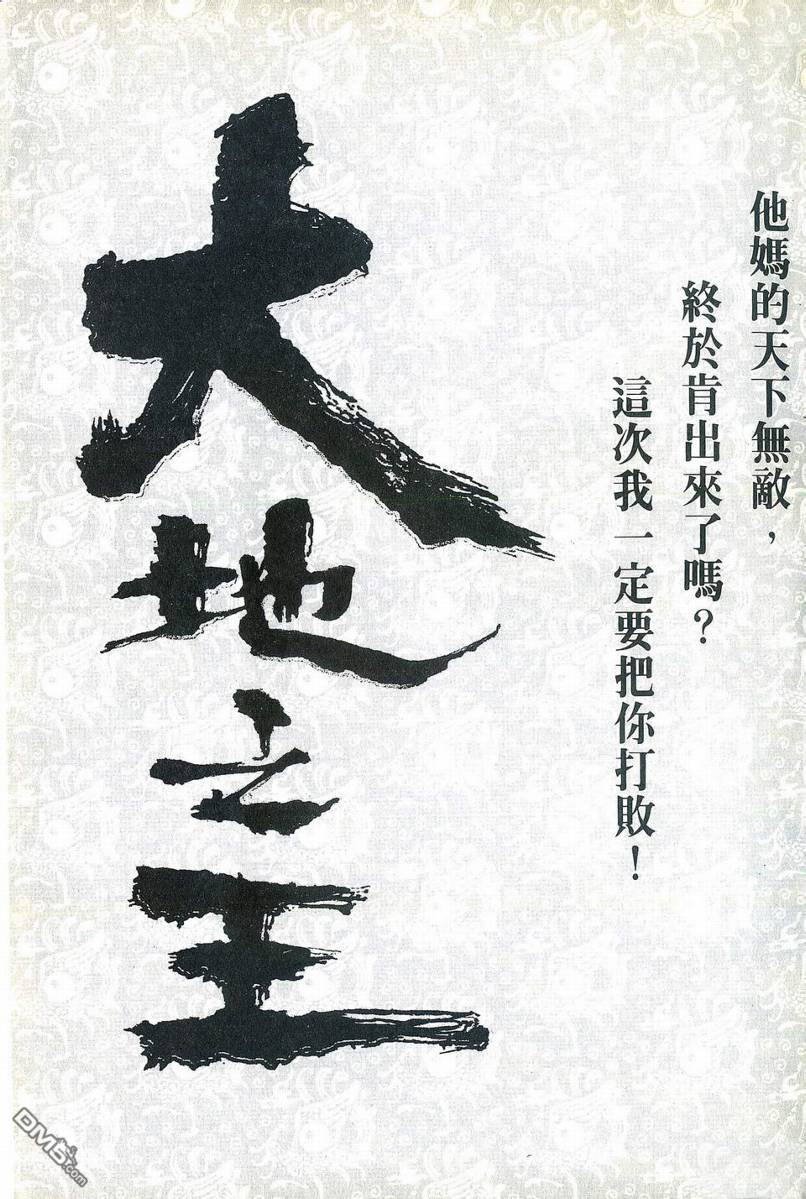 他媽的天下無敵，
終於肯出來了嗎？
這次我一定要把你打敗！
大地之王
DM5.com